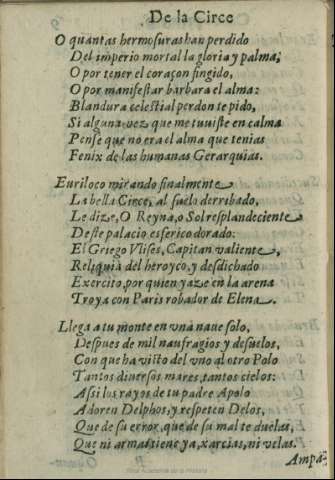 De la Circe
O quantas hermosuras han perdido
Del imperio mortal la gloria y palma;
O por tener el coraçon fingido,
O por manifestar barbara el alma:
Blandura celestial perdon te pido,
Si alguna vez que me tuuiste en calma
Pense que no era el alma que tenias
Fenix de las humanas Gerarquias.
Euriloco mirando finalmente
La bella Circe, al suelo derribado,
Le dize, O Reyna, o Sol resplandeciente
Deste palacio esferico dorado:
El Griego Vlises, Capitan valiente,
Reliquia del heroyco, y desdichado
Exercito, por quien yaze en la arena
Troya con Paris robador de Elena.
Llega a tu monte en vna naue solo,
Despues de mil naufragios y desuelos,
Con que ha visto del vno al otro Polo
Tantos diuersos mares, tantos cielos:
Assi los rayos de tu padre Apolo
Adoren Delphos, y respeten Delos,
Que de su error, que de su mal te duelas,
Que ni armas tiene ya, xarcias, ni velas.
Ampa-
Real Academia de la Historia